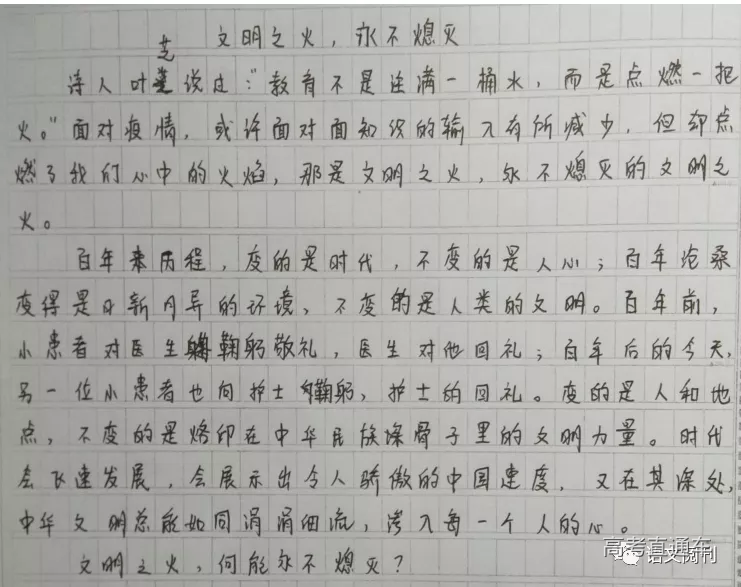 文明之火，永不熄灭
诗人叶芝说过："教育不是注满一桶水，而是点燃一把
火。"面对疫情，或许面对面知识的输入有所减少，但却点
燃了我们心中的火焰，那是文明之火，永不熄灭的文明之
火。
百年来历程，变的是时代，不变的是人心；百年沧桑
变得是日新月异的环境，不变的是人类的文明。百年前，
小患者对医生鞠躬敬礼，医生对他回礼；百年后的今天，
另一位小患者也向护士鞠躬，护士的回礼。变的是人和地
点，不变的是烙印在中华民族深骨子里的文明力量。时代
会飞速发展，会展示出令人骄傲的中国速度，又在其深处，
中华文明总能如同涓涓细流，渗入每一个人的心。
文明之火，何能永不熄灭？
高考直通车
语文月刊